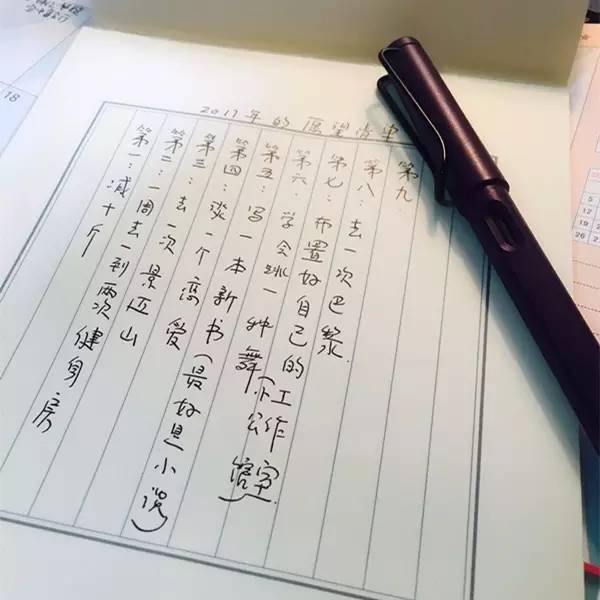 2017年的愿望清单
第一：减十斤
第二：一周去一到两次健身房
第三：去一次景迈山
第四：谈一个恋爱
第五：写一本新书（最好是小说）
第六：学会跳一种舞
第七：布置好自己的工作室
公寓
第八：去一次巴黎.
第九：
18
5
12
19
26